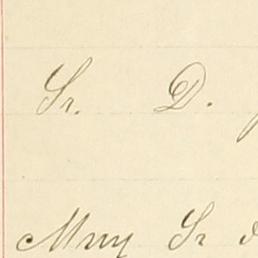 Sr. D.
Muy Sr